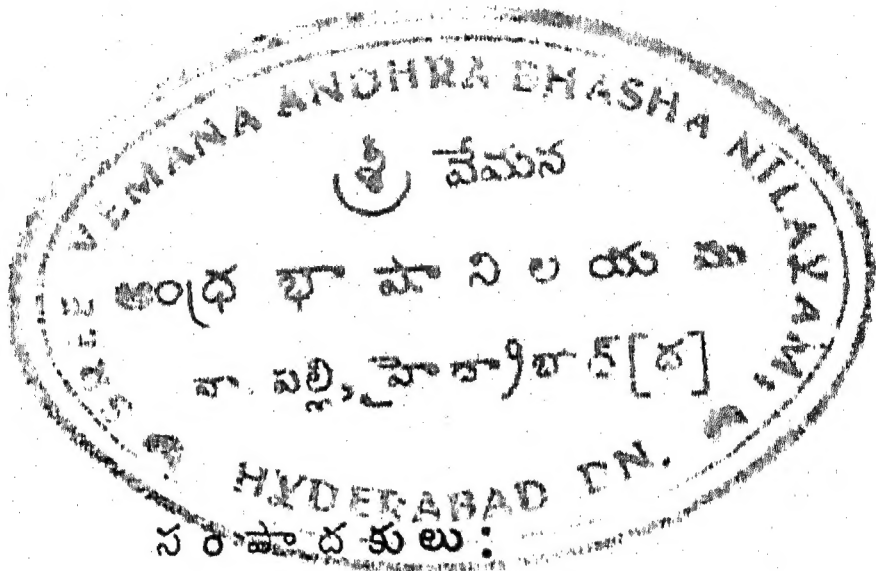 SREE VEMANA ANDHRA BHASHA NILAYAM,
శ్రీ వేమన
ఆంధ్ర భాషా ని ల య ము
పల్లి,
HYDERABAD DN.
సంపాదకులు: